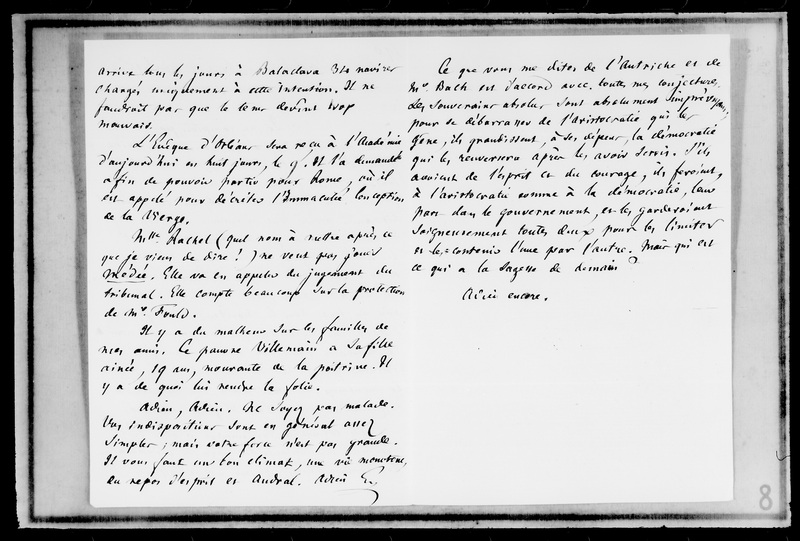 arrive tous les jours à Balaclava 3 to navires
chargés uniquement à cette intention. Il ne
faudrait pas que le tems devint trop
mauvais.
L'Evêque d'Orléans sera reçu à l'Académie
d'aujourd'hui en huit jours, le 9. Il l'a demandé
afin de pouvoir partir pour Rome, où il
est appelé pour décréter l'Immaculée Conception
de la Vierge.
Mlle Rachel (quel nom à mettre après ce
que je viens de dire !) ne veut pas jouer
Médée. Elle va en appeler du jugement du
tribunal. Elle compte beaucoup sur la protection
de Mr. Fould.
Il y a du malheur sur les familles de
mes amis. Ce pauvre Villemain a sa fille
ainée, 19 ans, mourante de la poitrine. Il
y a de quoi lui rendre la folie.
Adieu, Adieu. Ne soyez pas malade.
Vos indispositions sont en général assez
simples ; mais votre force n'est pas grande.
Il vous faut un bon climat, une vie monotone,
un repos d'esprit et Andral. Adieu
Ce que vous me dites de l'Autriche et de
Mr. Bach est d'accord avec toutes mes conjectures.
Les Souverains absolus sont absolument imprévoyans ;
pour se débarrasser de l'aristocratie qui les
gêne, ils grandissent, à ses dépens, la démocratie
qui les renversera après les avoir servis. S'ils
avaient de l'esprit et du courage, ils feroient,
à l'aristocratie comme à la démocratie, leur
part dans le gouvernement, et les garderoient
soigneusement toutes deux pour les limiter
et les contenir l'une par l'autre. Mais qui est
ce qui a la sagesse de demain ?
Adieu encore.
8